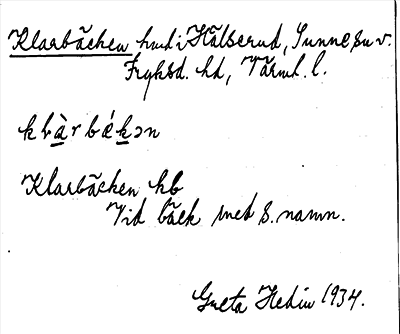 Klarbäcken hmd i Hälserud, Sunne sn v.
Fryksd. hd, Värml. l.
Klarbäcken hb
Vid bäck med s. namn.
Greta Hedin 1934.